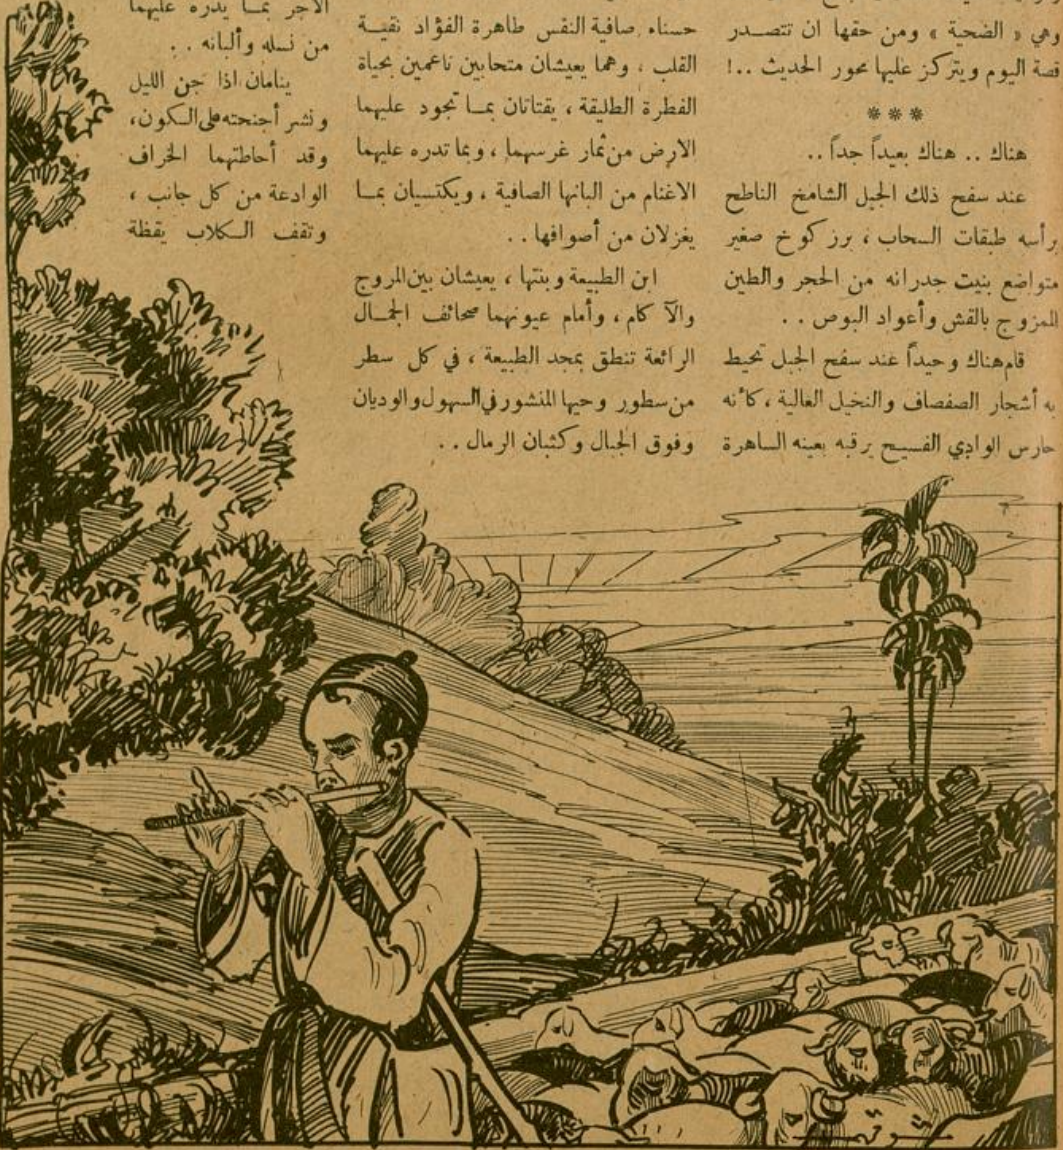 وهي « الضحية » ومن حقها ان تتصدر
قصة اليوم ويتركز عليها محور الحديث ..!
***
هناك .. هناك بعيداً جداً ..
عند سفح ذلك الجبل الشامخ الناطح
برأسه طبقات السحاب ، برز كوخ صغير
متواضع بنيت جدرانه من الحجر والطين
الممزوج بالقش وأعواد البوص ..
قام هناك وحيداً عند سفح الجبل تحيط
به أشجار الصفصاف والنخيل العالية ، كأنه
حارس الوادي الفسيح يرقبه بعينه الساهرة
حسناء صافية النفس طاهرة الفؤاد نقية
القلب ، وهما يعيشان متحابين ناعمين بحياة
الفطرة الطليقة ، يقتاتان بما تجود عليهما
الارض من ثمار غرسهما ، وبما تدره عليهما
الاغنام من البانها الصافية ، ويكتسيان بما
يغزلان من أصوافها ..
ابن الطبيعة وبنتها ، يعيشان بين المروج
والآكام ، وأمام عيونهما صحائف الجمال
الرائعة تنطق بمجد الطبيعة ، في كل سطر
من سطور وحيها المنشور في السهول والوديان
وفوق الجبال وكثبان الرمال ..
الآخر بما يدره عليهما
من نسله وألبانه ..
ينامان اذا جن الليل
ونشر أجنحته على الكون ،
وقد أحاطتهما الخراف
الوادعة من كل جانب ،
وتقف الكلاب يقظة